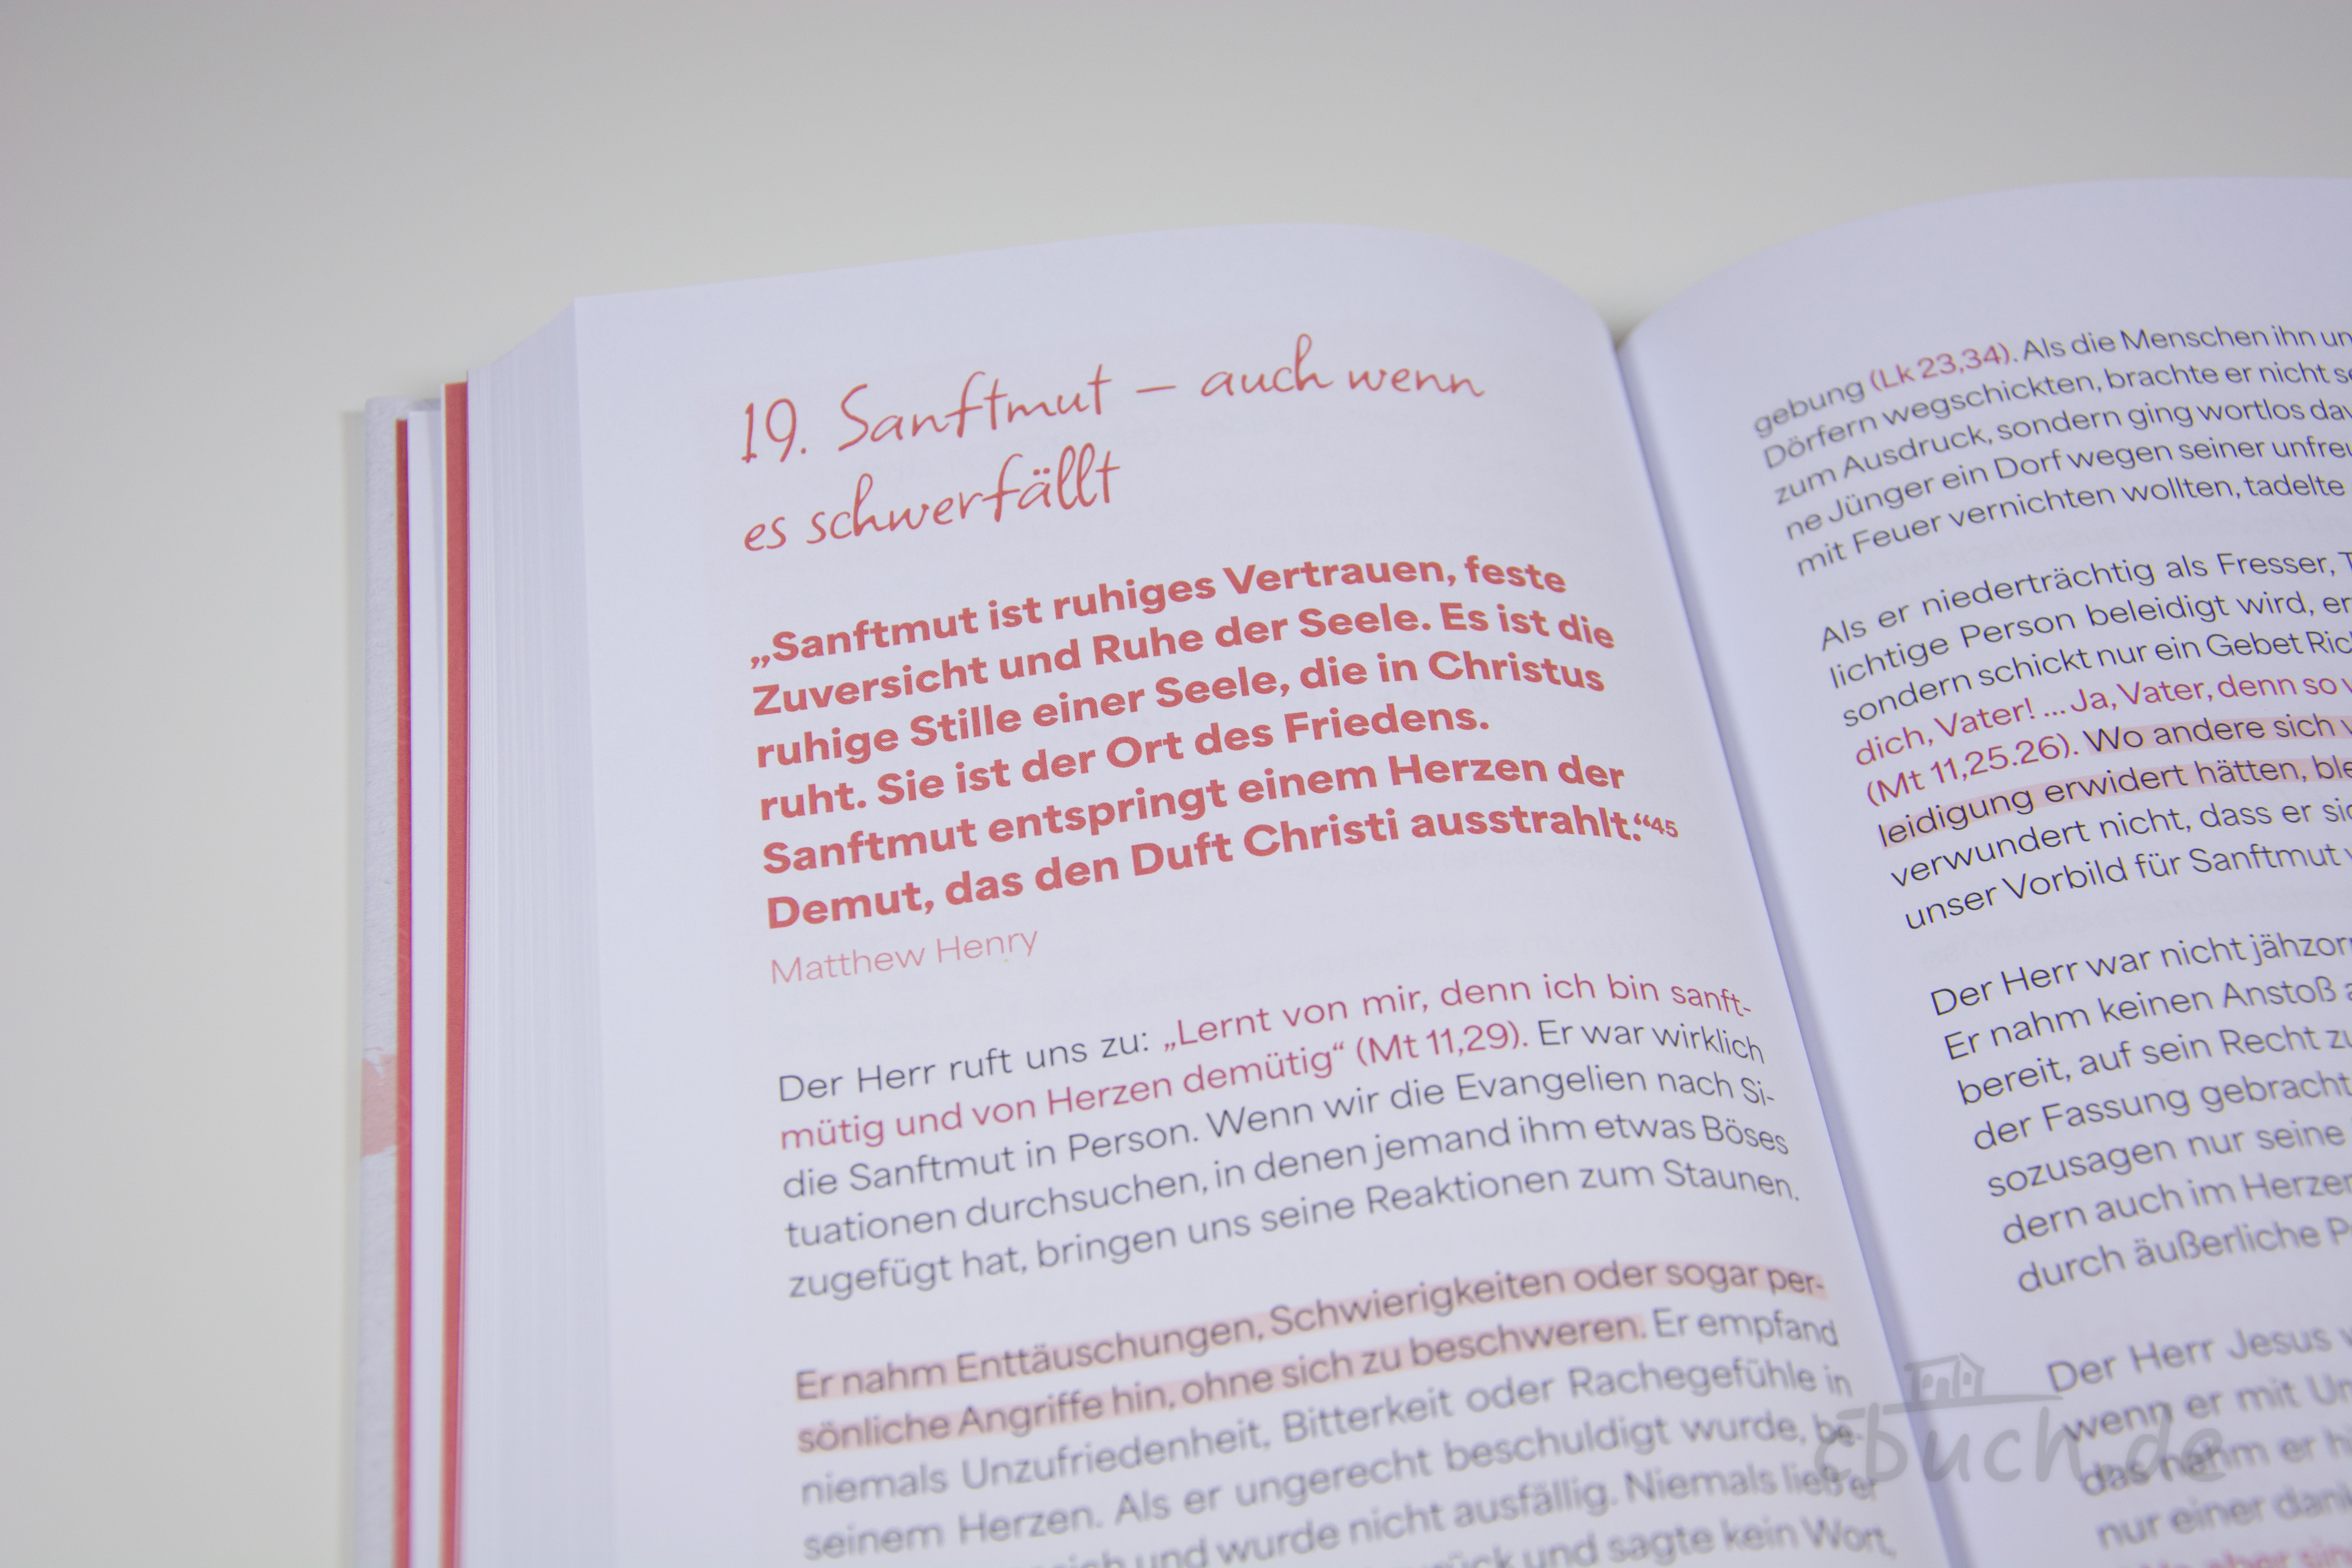 19. Sanftmut – auch wenn
es schwerfällt
„Sanftmut ist ruhiges Vertrauen, feste
Zuversicht und Ruhe der Seele. Es ist die
ruhige Stille einer Seele, die in Christus
ruht. Sie ist der Ort des Friedens.
Sanftmut entspringt einem Herzen der
Demut, das den Duft Christi ausstrahlt.“45
Matthew Henry
Der Herr ruft uns zu: „Lernt von mir, denn ich bin sanft-
mütig und von Herzen demütig“ (Mt 11,29). Er war wirklich
die Sanftmut in Person. Wenn wir die Evangelien nach Si-
tuationen durchsuchen, in denen jemand ihm etwas Böses
zugefügt hat, bringen uns seine Reaktionen zum Staunen.
Er nahm Enttäuschungen, Schwierigkeiten oder sogar per-
sönliche Angriffe hin, ohne sich zu beschweren. Er empfand
niemals Unzufriedenheit, Bitterkeit oder Rachegefühle in
seinem Herzen. Als er ungerecht beschuldigt wurde, be-
sich und wurde nicht ausfällig. Niemals ließ er
und sagte kein Wort,
gebung (Lk 23,34). Als die Menschen ihn
Dörfern wegschickten, brachte er nicht
zum Ausdruck, sondern ging wortlos
ne Jünger ein Dorf wegen seiner
mit Feuer vernichten wollten, tadelte
Als er niederträchtig als Fresser,
lichtige Person beleidigt wird,
sondern schickt nur ein Gebet
dich, Vater! ... Ja, Vater, denn so
(Mt 11,25.26). Wo andere sich
leidigung erwidert hätten,
verwundert nicht, dass er
unser Vorbild für Sanftmut
Der Herr war nicht
Er nahm keinen Anstoß
bereit, auf sein Recht
der Fassung gebracht
sozusagen nur seine
dern auch im Herzen
durch äußerliche
Der Herr Jesus
wenn er mit
das nahm er
nur einer
cbuch.de